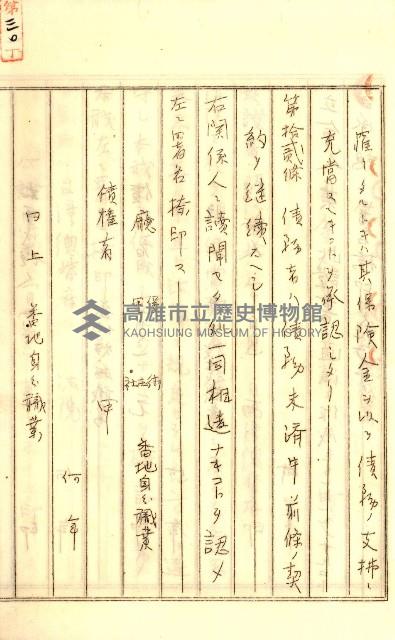 第三〇丁
罹リタルトキハ其保険金ヲ以テ債務ノ支拂ニ
充當スヘキコトヲ承認シタリ
第拾貳條 債務者ハ債務未済中前條ノ契
約ヲ継続スヘシ
右関係人ニ讀聞セタル処一同相違ナキコトヲ認メ
左ニ署名捺印ス
廳 堡 街 番地身分職業
債権者 甲
何年
同上 番地身分職業
高雄市立歷史博物館
KAOHSIUNG MUSEUM OF HISTORY